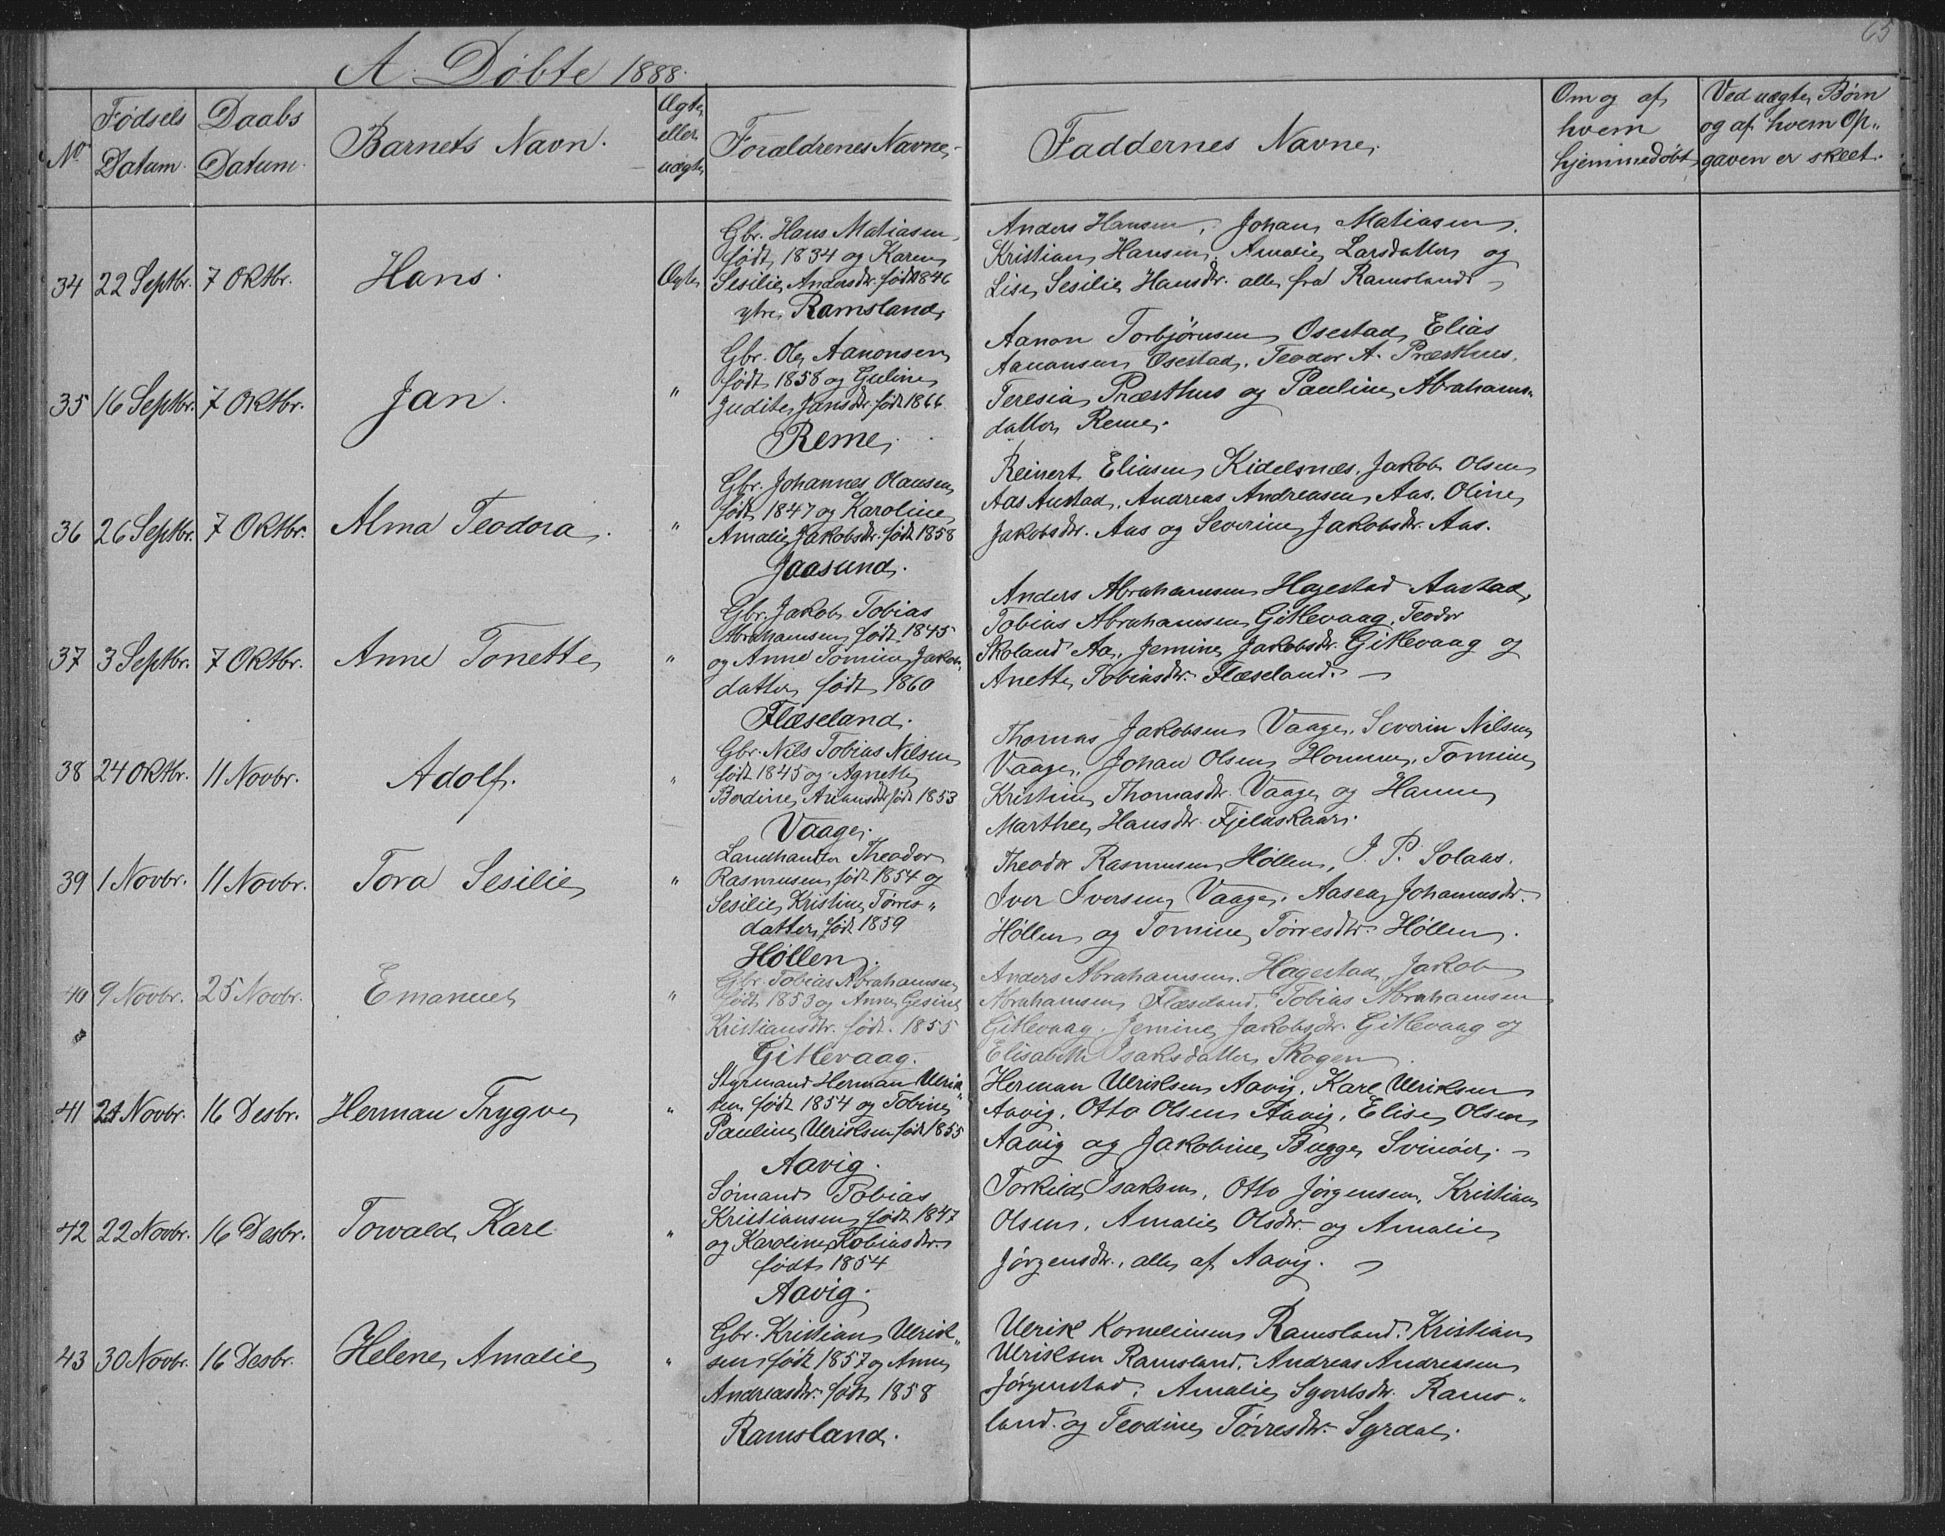 65
A. Døbte 1888.
No. Fødsels Datum. Daabs Datum. Barnets Navn. Ægte eller uægte Foraldrenes Navne. Faddernes Navne. Om og af hvem hjemmedøbt Ved uægte Børn og af hvem Op„gaven er skeet.
34 22 Septbr. 7 Oktbr. Hans. Ægte
Gbr. Hans Matiasen,
født 1834 og Karen
Sesilie Andersdtr. født 1846
ytre Ramsland,
Anders Hansen, Johan Matiasen,
Kristian Hansen, Amalie Larsdatter og
Lise Sesilie Hansdtr. alle fra Ramsland.
35 16 Septbr. 7 Oktbr. Jan. "
Gbr. Ole Aanonsen
født 1858 og Guline
Judite Jansdtr. født 1866
Reme.
Aanon Torbjørnsen Osestad, Elias
Aanonsen Osestad, Teodor A. Præsthus,
Teresia Præsthus og Pauline Abrahams-
datter Reme.
36 26 Septbr. 7 Oktbr. Alma Teodora. "
Gbr. Johannes Olausen
født 1847 og Karoline
Amalie Jakobsdtr. født 1858
Jaasund.
Reinert Eliasen Kidelsnæs, Jakob Olsen
Aas Austad, Andreas Andreasen Aas, Oline
Jakobsdtr. Aas og Severine Jakobsdtr. Aas.
37 3 Septbr. 7 Oktbr. Anne Tonette "
Gbr. Jakob Tobias
Abrahamsen født 1845
og Anne Tomine Jakobs
datter født 1860
Flæseland.
Anders Abrahamsen Hagestad Austad,
Tobias Abrahamsen Gitlevaag, Teodor
Skoland Aa., Jemine Jakobsdtr. Gitlevaag og
Anette Tobiasdtr. Flæseland.
38 24 Oktbr. 11 Novbr. Adolf. "
Gbr. Nils Tobias Nilsen
født 1845 og Agnette
Bordine Ariansdtr født 1853
Vaage.
Thomas Jakobsen Vaage, Severin Nilsen
Vaage, Johan Olsen Homme, Tomine
Kristine Thomasdtr. Vaage og Hanne
Marthea Hansdtr. Fjeldskaar.
39 1 Novbr. 11 Novbr. Tora Sesilie "
Landhandler Theodor
Rasmusen født 1854 og
Sesilie Kristine Tørres„
datter født 1859
Høllen.
Theodor Rasmusen Høllen, J. P. Solaas.
Iver Iversen Vaage, Aasea Johannesdtr.
Høllen og Tomine Tørresdtr. Høllen.
40 9 Novbr. 25 Novbr. Emanuel "
Gbr. Tobias Abrahamsen
født 1853 og Anne Gesine
Kristiansdtr. født 1855
Gitlevaag.
Anders Abrahamsen Hagestad, Jakob
Abrahamsen Flæseland, Tobias Abrahamsen
Gitlevaag, Jemine Jakobsdtr. Gitlevaag og
Elisabeth Isaksdatter Skogen.
41 21 Novbr. 16 Desbr. Herman Trygve "
Styrmand Herman Ulrik„
sen født 1854 og Tobine
Pauline Ulriksen født 1855
Aavig.
Herman Ulriksen Aavig, Karl Ulriksen
Aavig, Otto Olsen Aavig, Elise Olsen
Aavig og Jakobine Bugge Svinør.
42 22 Novbr. 16 Desbr. Torvald Karl "
Sømand Tobias
Kristiansen født 1847
og Karoline Tobiasdtr.
født 1854
Aavig.
Torkild Isaksen, Otto Jørgensen, Kristian
Olsen, Amalie Olsdtr. og Amalie
Jørgensdtr., alle af Aavig.
43 30 Novbr. 16 Desbr. Helene Amalie "
Gbr. Kristian Ulrik„
sen født 1857 og Anne
Andreasdtr. født 1858
Ramsland.
Ulrik Korneliusen Ramsland, Kristian
Ulriksen Ramsland, Andreas Andreasen
Jørgenstad, Amalie Syvertsdtr. Rams„
land og Teodine Tørresdtr. Syrdal.